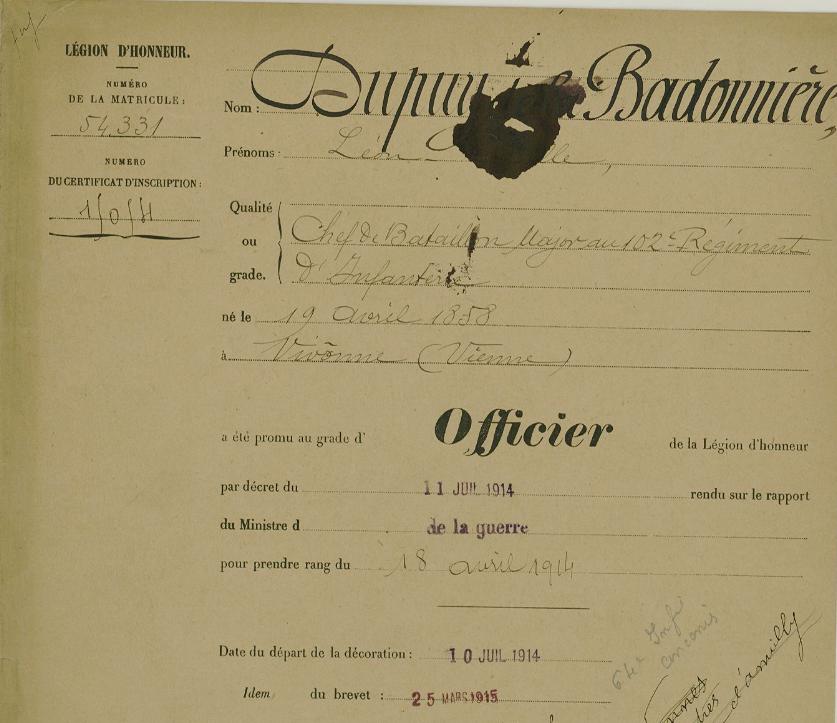 LÉGION D'HONNEUR.
NUMÉRO
DE LA MATRICULE :
54,331
NUMÉRO
DU CERTIFICAT D'INSCRIPTION :
Nom : Dupuy de la Badonnière,
Prénoms : Léon
Qualité
ou
grade.
Chef de Bataillon Major au 102e Régiment
d'Infanterie
né le 19 avril 1858
à Vivonne (Vienne)
a été promu au grade d' Officier de la Légion d'honneur
par décret du 11 JUIL 1914 rendu sur le rapport
du Ministre d de la guerre
pour prendre rang du 18 avril 1914
Date du départ de la décoration : 10 JUIL 1914
Idem du brevet : 25 MARS 1915
64e Infie
ancenis